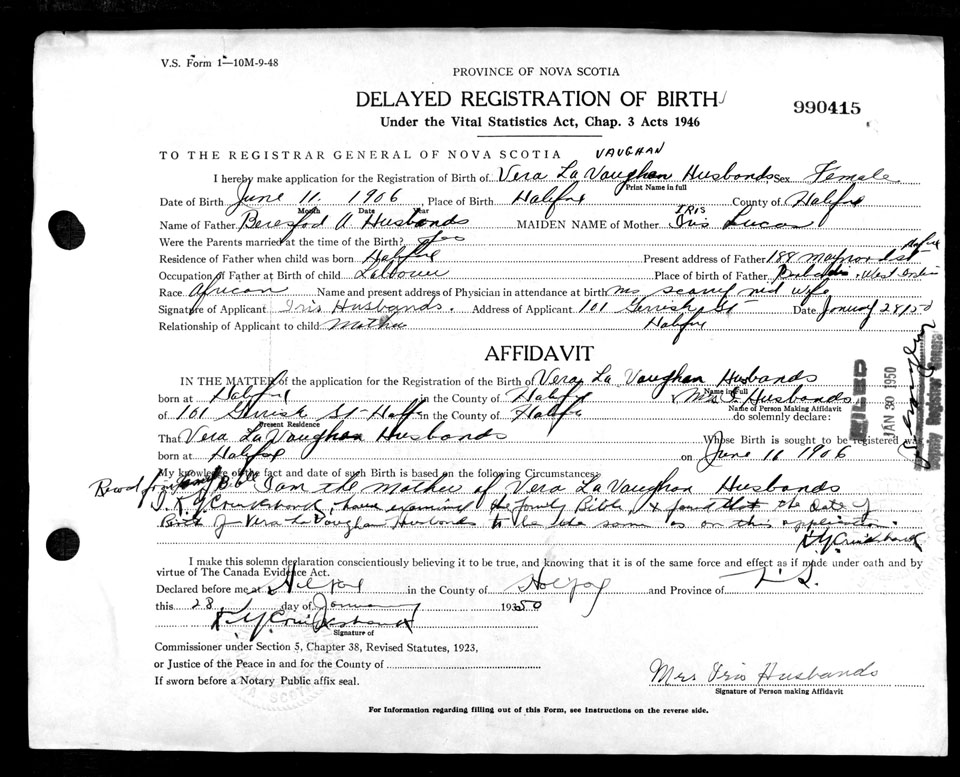 V.S. Form 1—10M-9-48
PROVINCE OF NOVA SCOTIA
DELAYED REGISTRATION OF BIRTH
990415
Under the Vital Statistics Act, Chap. 3 Acts 1946
TO THE REGISTRAR GENERAL OF NOVA SCOTIA VAUGHAN
I hereby make application for the Registration of Birth of Vera La Vaughan Husbands Sex Female
Print Name in full
Date of Birth June 11 1906, Place of Birth Halifax County of Halifax
Month Date Year IRIS
Name of Father Beresfod A Husbands MAIDEN NAME of Mother Iris Lucas
Were the Parents married at the time of the Birth? yes
Residence of Father when child was born Halifax Present address of Father 188 Maynard St Halifax
Occupation of Father at Birth of child Labourer Place of birth of Father West Indies
Race African Name and present address of Physician in attendance at birth mid wife
Signature of Applicant Iris Husbands. Address of Applicant 101 St Date January 28/50
Relationship of Applicant to child Mother Halifax
AFFIDAVIT
IN THE MATTER of the application for the Registration of the Birth of Vera La Vaughan Husbands
Name in Full
born at Halifax in the County of Halifax Mrs I. Husbands
Name of Person Making Affidavit
of 101 St Halifax in the County of Halifax do solemnly declare:
Present Residence
That Vera La Vaughan Husbands Whose Birth is sought to be registered was
born at Halifax on June 11 1906
My knowledge of the fact and date of such Birth is based on the following Circumstances
Record from family Bible I am the Mother of Vera La Vaughan Husbands
I, R. Y Cruikshank, have examined the family Bible & found that the date of
Birth of Vera La Vaughan Husbands to be the same as on this application.
R Y Cruikshank
FILED
JAN 30 1950
Deputy Registrar General
I make this solemn declaration conscientiously believing it to be true, and knowing that it is of the same force and effect as if made under oath and by
virtue of The Canada Evidence Act.
Declared before me at Halifax in the County of Halifax and Province of N. S.
this 28 day of January 1950
R Y Cruikshank
Signature of
Commissioner under Section 5, Chapter 38, Revised Statutes, 1923,
or Justice of the Peace in and for the County of
If sworn before a Notary Public affix seal.
Mrs Iris Husbands
Signature of Person making Affidavit
For Information regarding filling out of this Form, see Instructions on the reverse side.